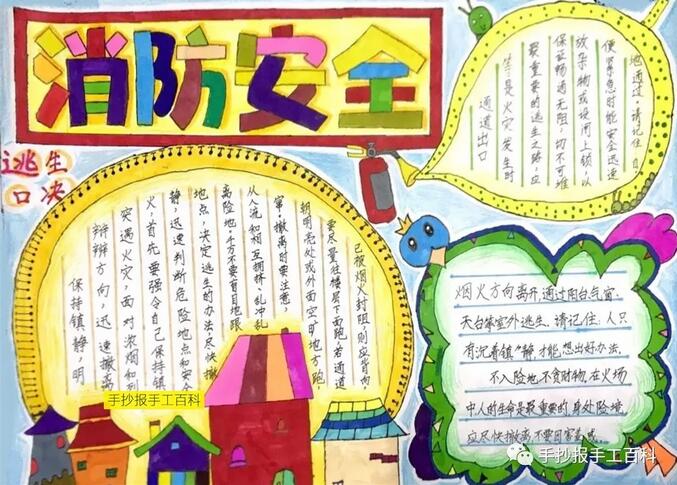 消防安全
逃生
口决
保持镇静，明
辩辩方向，迅速撤离
突遇火灾，面对浓烟和烈
火，首先要强令自己保持镇
静，迅速判断危险地点和安全
地点，决定逃生的办法，尽快撤
离险地。千万不要盲目地跟
从人流和相互拥挤、乱冲乱
窜。撤离时要注意，
朝明亮处或外面空旷地方跑，
要尽量往楼层下面跑，若通道
已被烟火封阻，则应背向
烟火方向离开，通过阳台气窗、
天台等室外逃生。请记住：人只
有沉着镇静，才能想出好办法。
不入险地，不贪财物，在火场
中人的生命是最重要的，身处险境，
应尽快撤离，不要因害羞或
通道出口
等是火灾发生时
最重要的逃生之路，应
保证畅通无阻，切不可堆
放杂物或设闸上锁，以
便紧急时能安全迅速
地通过，请记住：自
手抄报手工百科
手抄报手工百科